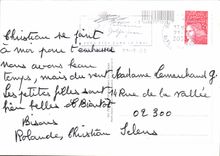 Christian se joint
à moi pour t'embrasser
nous avons beau
temps, mais du vent
Les petites filles sont
bien belles et
Bisous
Rolande, Christian
Madame Lemarchand G.
14 Rue de la Vallée
02300